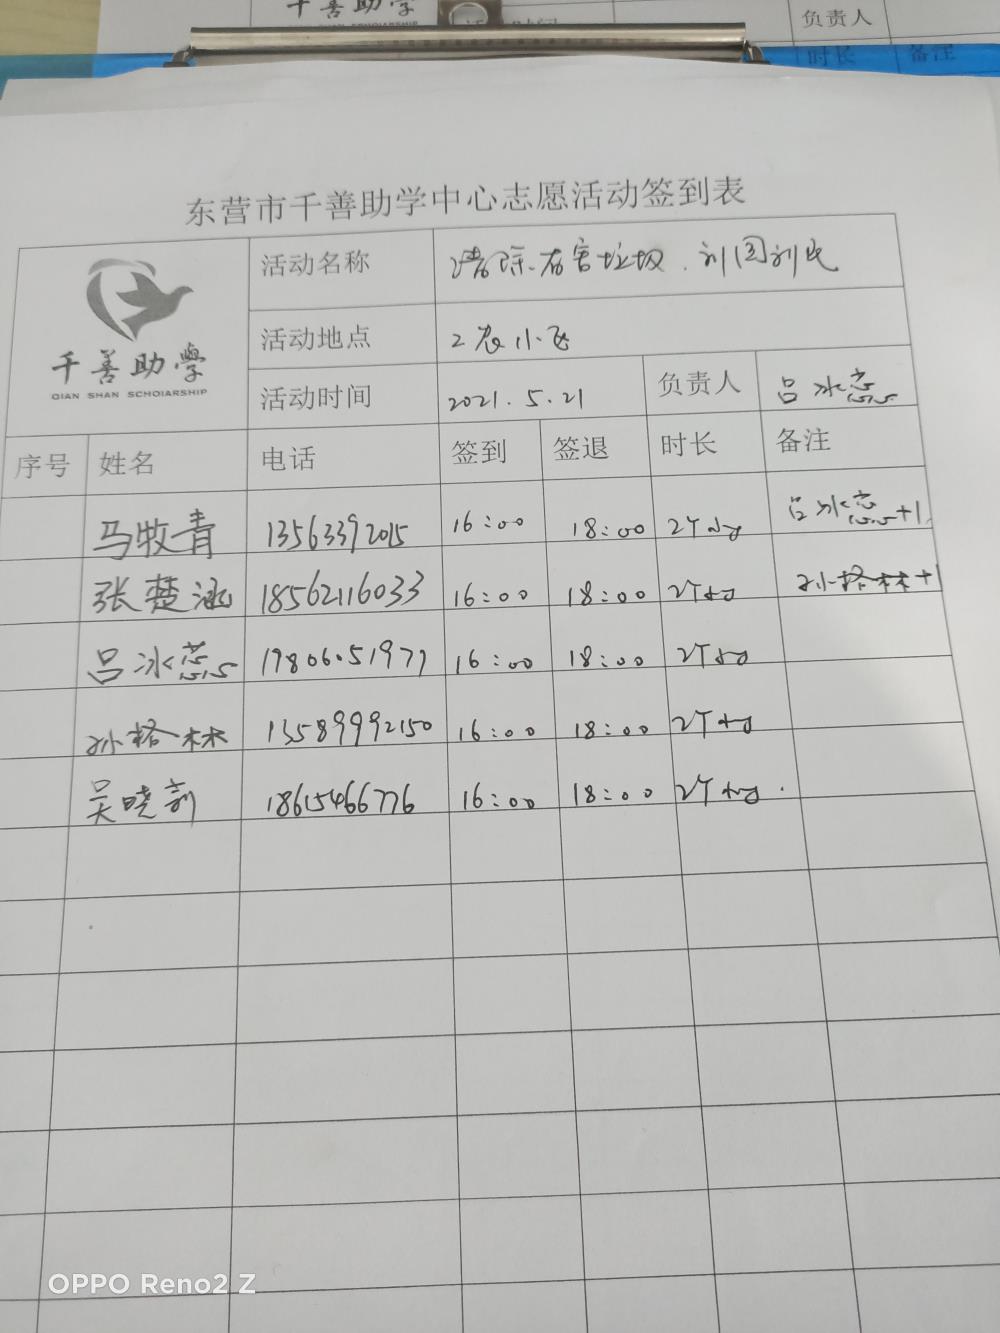 千善助学
负责人
时长
备注
东营市千善助学中心志愿活动签到表
千善助學
QIAN SHAN SCHOIARSHIP
活动名称 清除有害垃圾.利国利民
活动地点 小区
活动时间 2021.5.21 负责人 吕冰蕊
序号 姓名 电话 签到 签退 时长 备注
马牧青 13563392015 16:00 18:00 2个小时 吕冰蕊+1
张楚涵 18562116033 16:00 18:00 2个小时 孙格林+1
吕冰蕊 17806051977 16:00 18:00 2个小时
孙格林 13589992150 16:00 18:00 2个小时
吴晓 18615466776 16:00 18:00 2个小时.
OPPO Reno2 Z